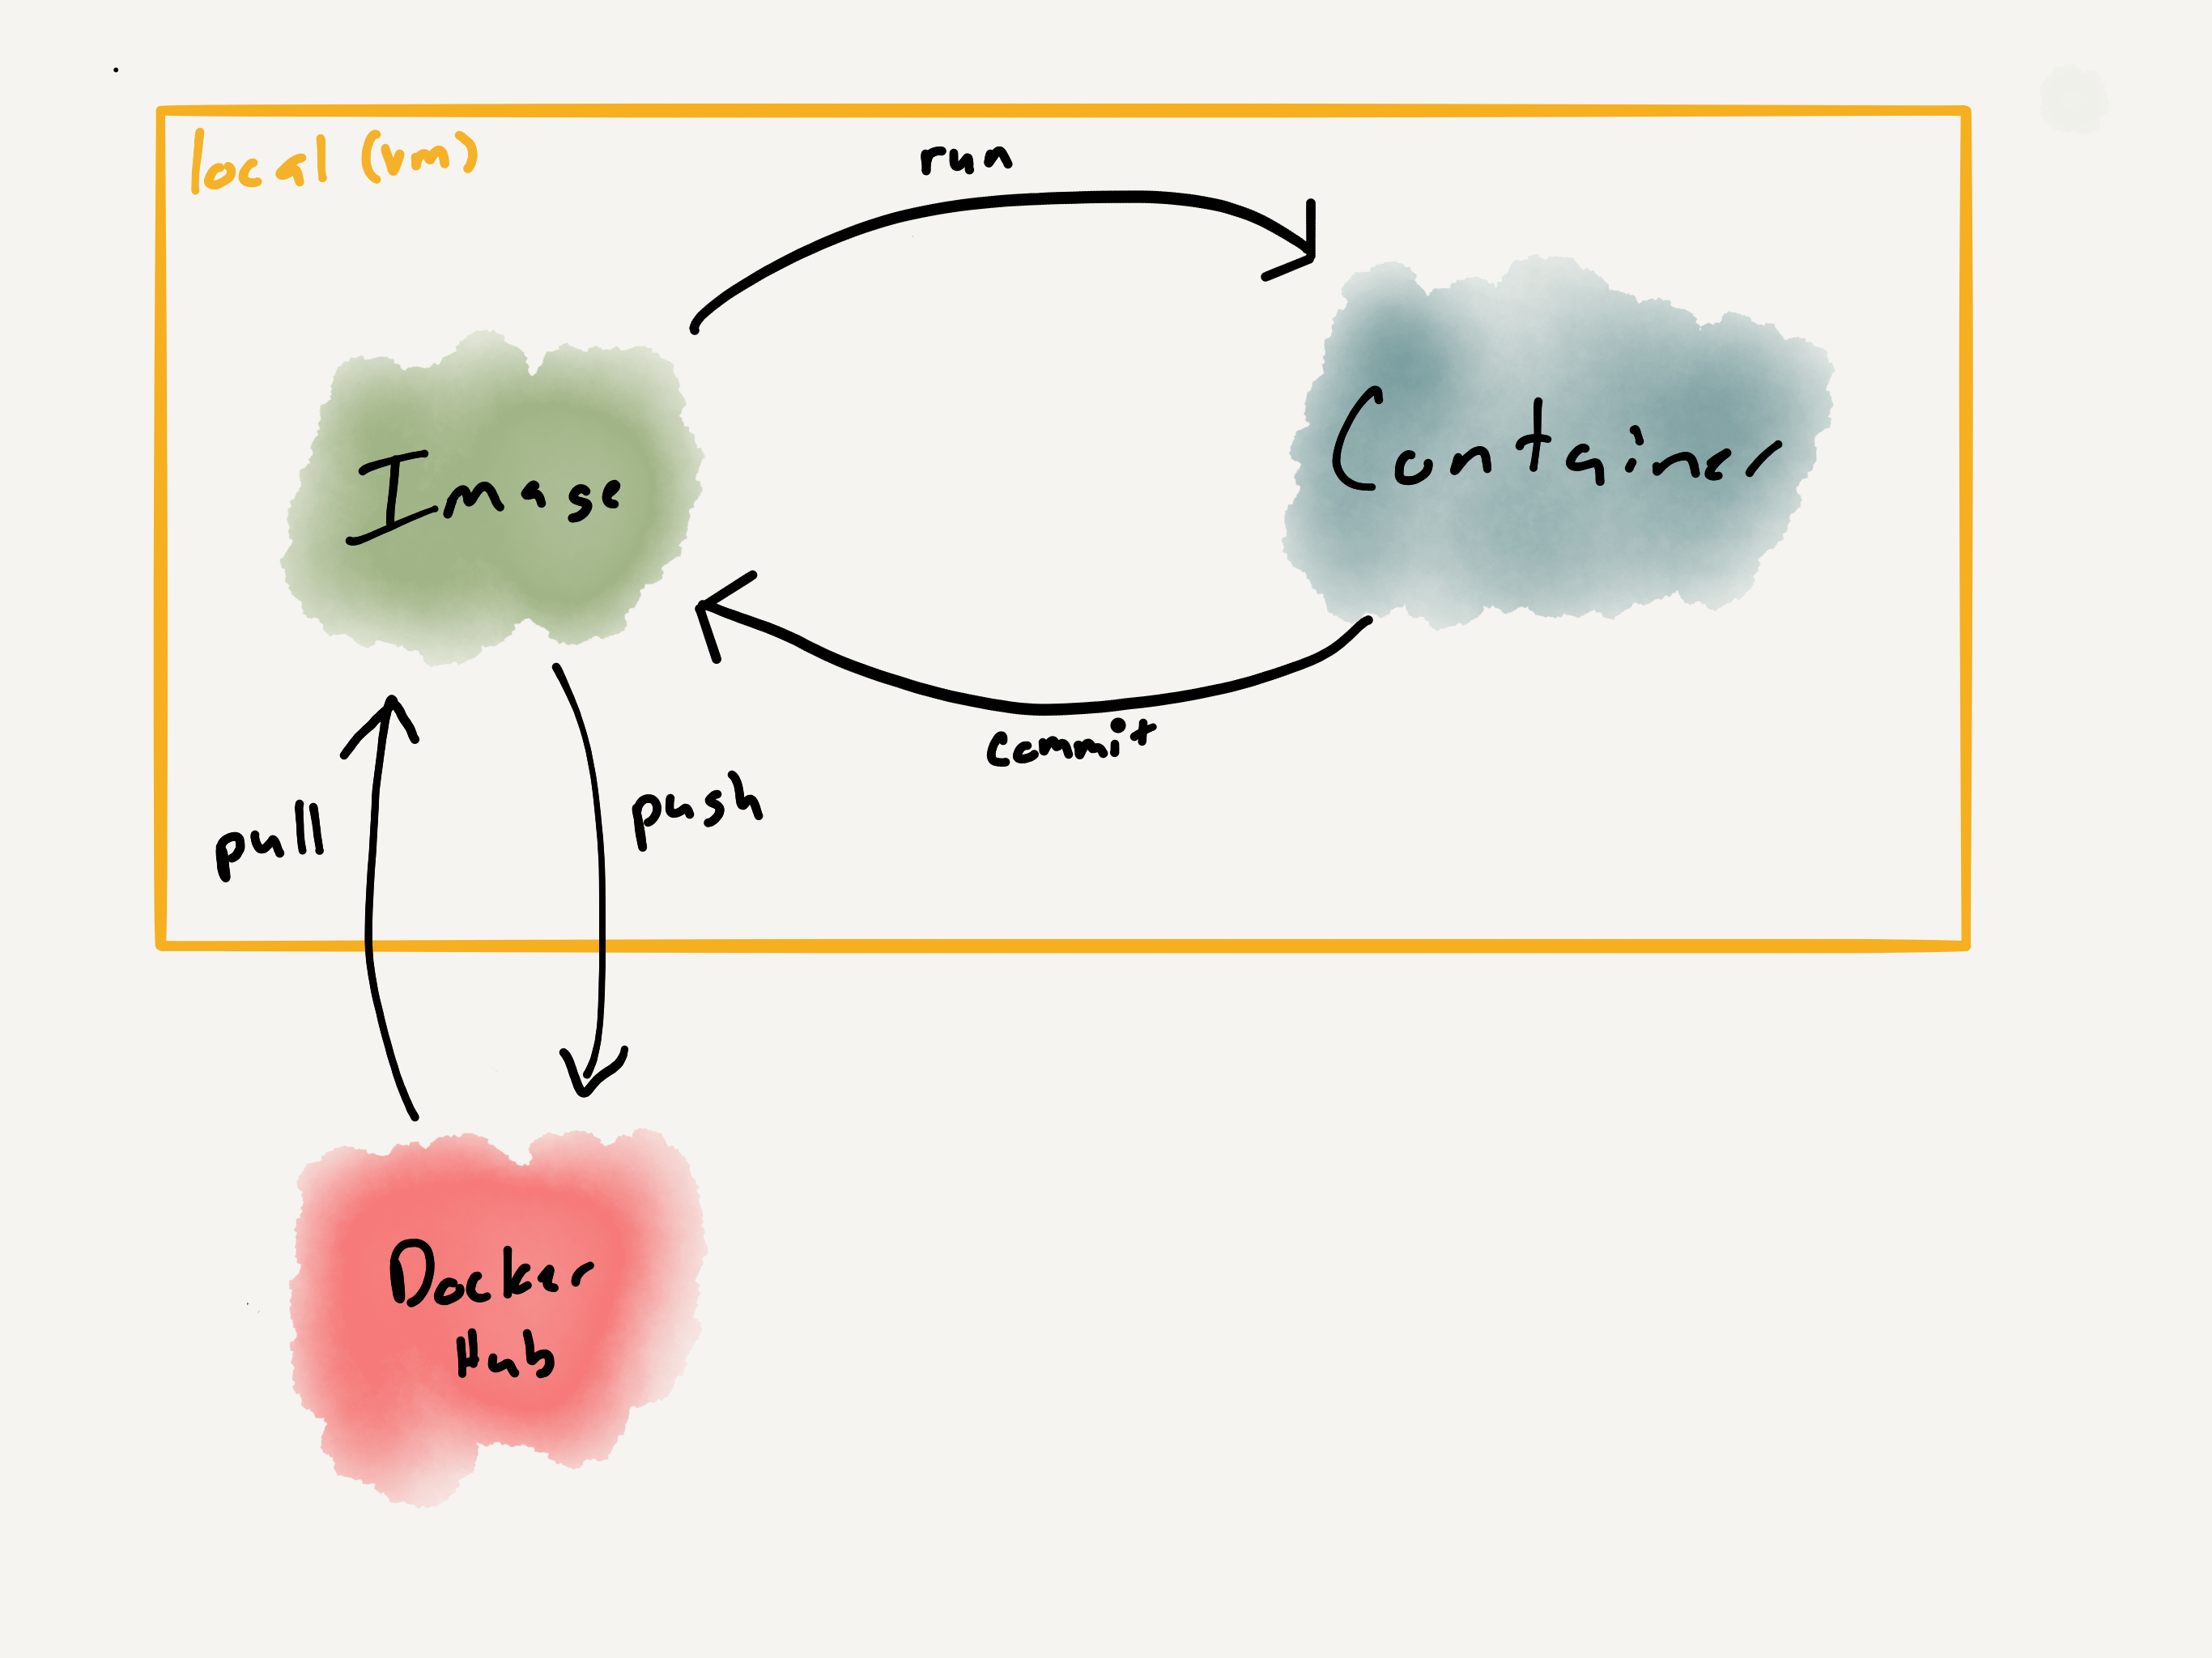 local (vm)
run
Image
Container
commit
pull
push
Docker
Hub